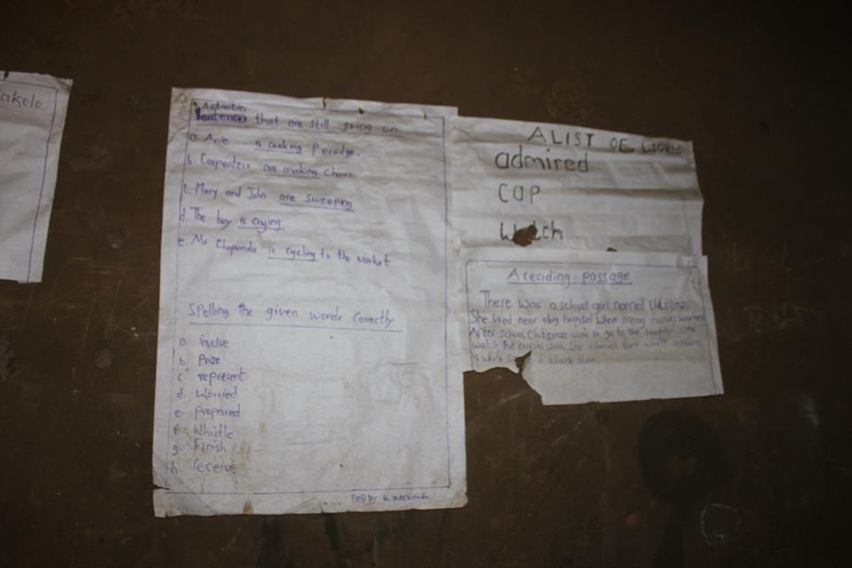 akolo
Activities
Sentences that are still going on
a. Ane is cooking Poradge.
b. Carpenters are making chairs
c. Mary and John are sweeping
d. The boy is crying.
e. Mr Chapanda is cycling to the market
Spelling the given words correctly
a. involve
b. Prize
c. represent
d. Worried
e. Prepared
f. Whistle
g. Finish
h. receive
A LIST OF WORDS
admired
cap
Watch
A reading passage
There was a school girl named
She lived near a big hospital where many nurses worked
After school Chikonze used to go to the hospital and
watch the nurses She admired their white